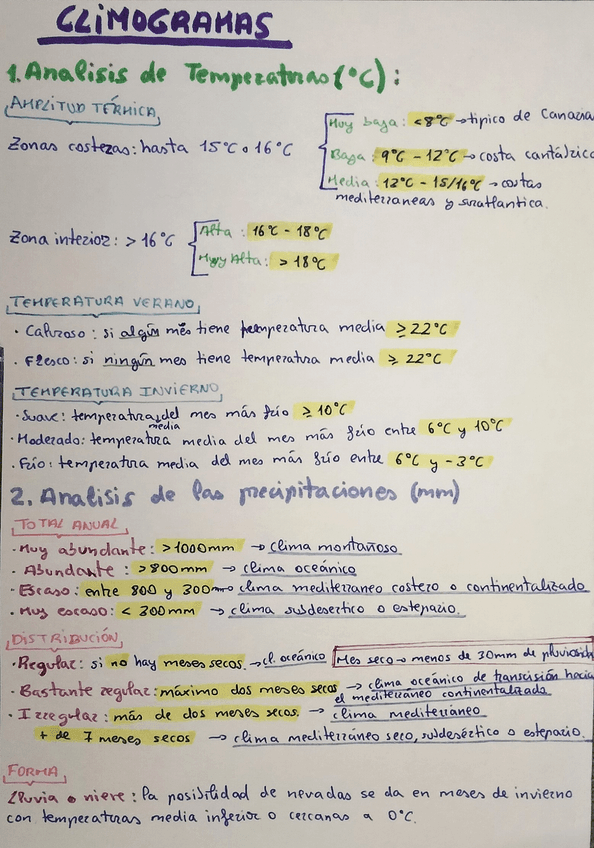 CLIMOGRAMAS
1. Analisis de Temperaturas (°C):
AMPLITUD TÉRMICA
Muy baja: <8°C → tipico de Canaria
Zonas costezas: hasta 15°C o 16°C
Baja: 9°C - 12°C → costa cantábrica
Media: 12°C - 15/16°C → costas
mediterraneas y suratlantica.
Zona interior: > 16°C
Alta: 16°C - 18°C
Muy Alta: > 18°C
TEMPERATURA VERANO
· Caluroso: si algún més tiene temperatura media ≥ 22°C
· Fresco: si ningún mes tiene temperatura media ≥ 22°C
TEMPERATURA INVIERNO
· Suave: temperatura media del mes más frío ≥ 10°C
· Moderado: temperatura media del mes más frío entre 6°C y 10°C
· Frío: temperatura media del mes más frío entre 6°C y -3°C
2. Analisis de las precipitaciones (mm)
TOTAL ANUAL
· Muy abundante: >1000mm → clima montañoso
· Abundante: >800mm → clima oceánico
· Escaso: entre 800 y 300mm → clima mediterraneo costero o continentalizado
· Muy escaso: < 300mm → clima subdesertico o estepario.
DISTRIBUCIÓN
· Regular: si no hay meses secos. → cl. oceánico
Mes seco → menos de 30mm de pluviosida
· Bastante regular: máximo dos meses secos → clima oceánico de transcisión hacia
el mediterráneo continentalizado
· Irregular: más de dos meses secos. → clima mediterráneo
+ de 7 meses secos → clima mediterráneo seco, subdesértico o estepario.
FORMA
Lluvia o nieve: la posibilidad de nevadas se da en meses de invierno
con temperaturas media inferior o cercanas a 0°C.